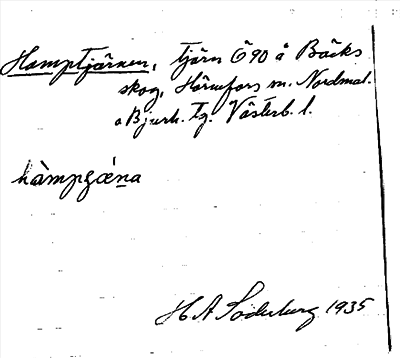 Hamptjärnen, tjärn Ö 90 å Bäcks
skog, Hörnefors m. Nordmal.
o Bjurh. Tg. Västerb. l.
hàmpɕæ̀ṇa
H A Söderberg 1935